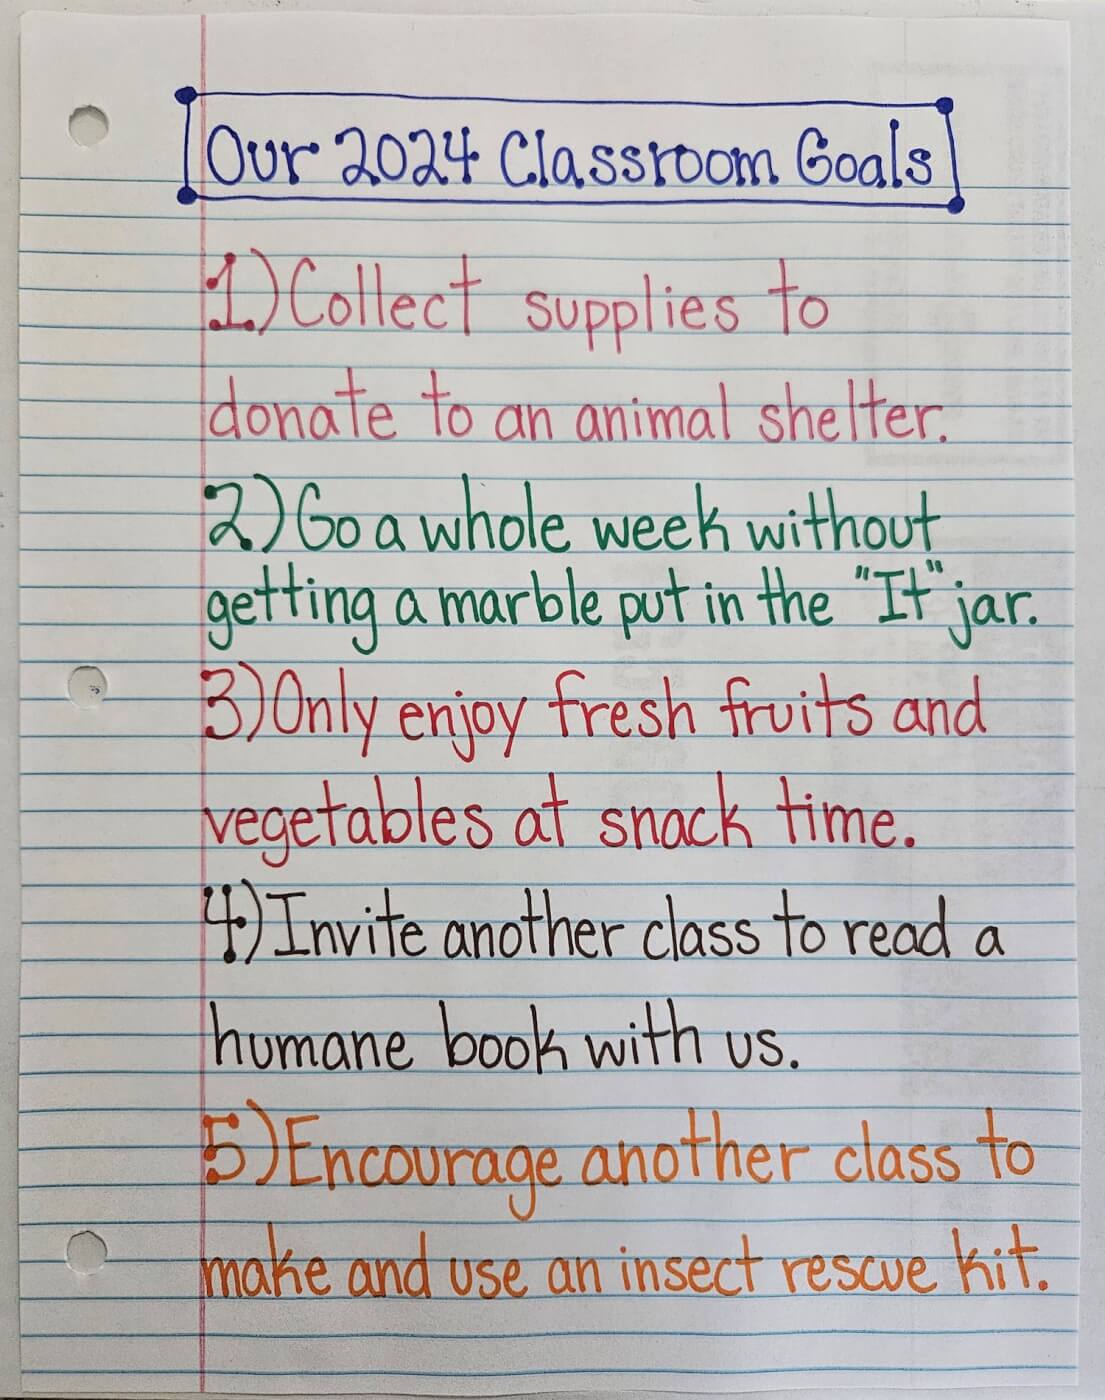 Our 2024 Classroom Goals
1) Collect supplies to
donate to an animal shelter.
2) Go a whole week without
getting a marble put in the "It" jar.
3) Only enjoy fresh fruits and
vegetables at snack time.
4) Invite another class to read a
humane book with us.
5) Encourage another class to
make and use an insect rescue kit.